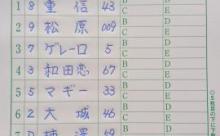 1 8 重信 43 B D C E
2 9 松原 009 B D C E
3 7 ゲレーロ 5 B D C E
4 3 和田恋 67 B D C E
5 5 マギー 33 B D C E
6 2 大城 46 B D C E
7 B D